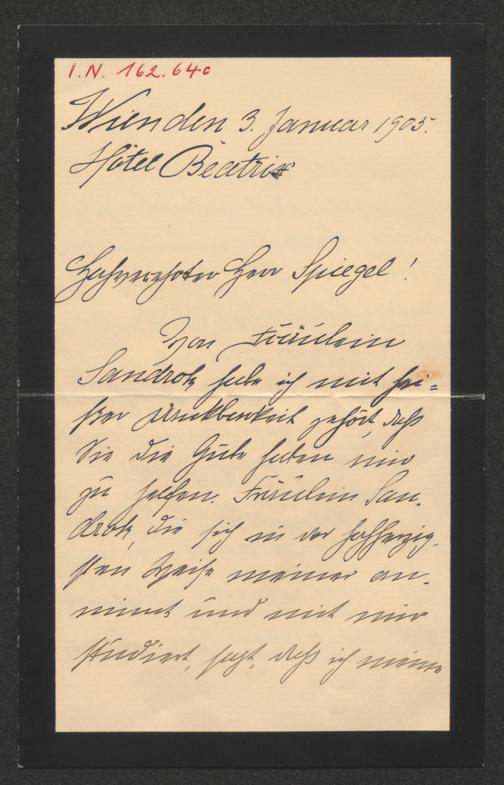 I.N. 162.640
Wien den 3. Januar 1905.
Hôtel Béatrix
Hochverehrter Herr Spiegel!
Von Fräulein
Sandrock habe ich mit hei=
ßer Dankbarkeit gehört, daß
Sie die Güte haben mir
zu helfen. Fräulein San-
drock, die sich in der hochherzig-
sten Weise meiner an-
nimmt und mit mir
studiert, sagt, daß ich meine